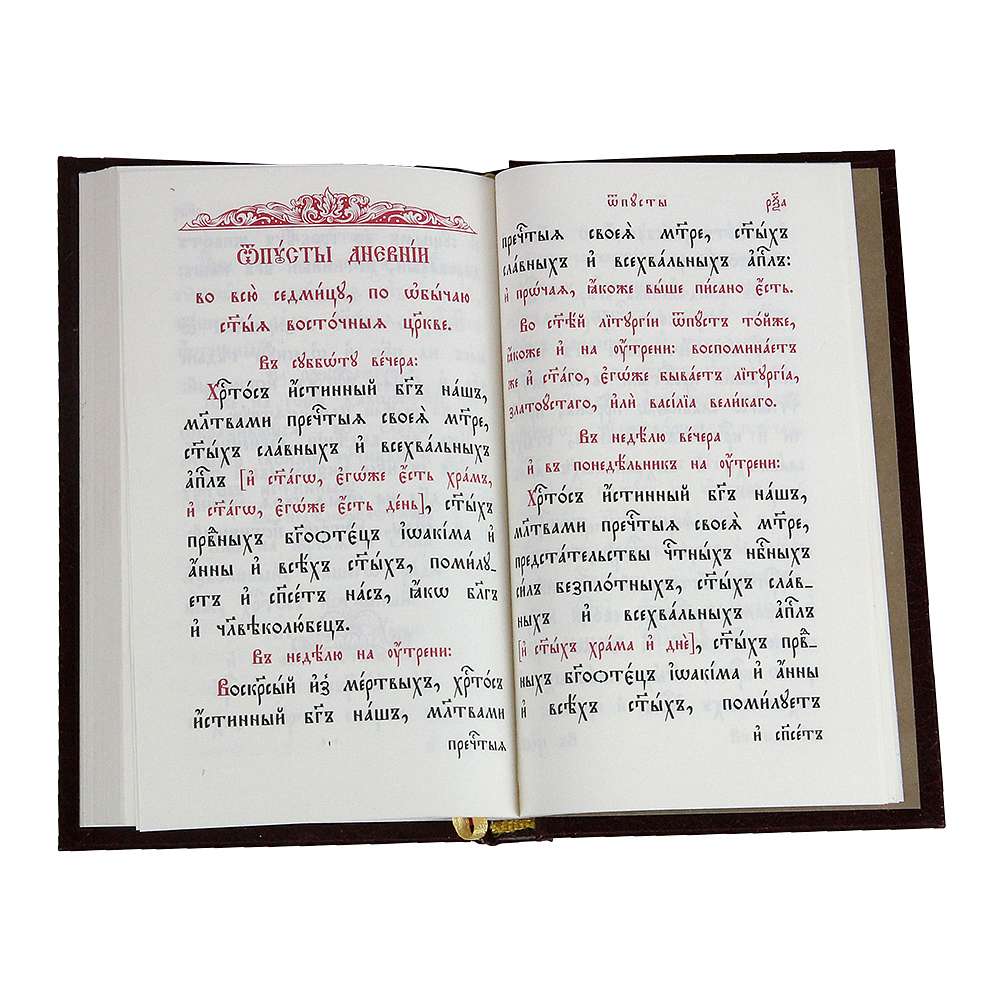 Ѿпꙋ́сты дневні́и
во всю̀ седми́цꙋ, по ѡ҆бы́чаю
ст҃ы́ѧ восто́чныѧ цр҃кве.
Въ сꙋббѡ́тꙋ ве́чера:
Хрⷭ҇то́съ и҆́стинный бг҃ъ на́шъ,
мл҃твами пречⷭ҇тыѧ своеѧ̀ мт҃ре,
ст҃ы́хъ сла́вныхъ и҆ всехва́льныхъ
а҆пⷭ҇лъ [и҆ ст҃а́гѡ, є҆гѡ́же є҆́сть хра́мъ,
и҆ ст҃а́гѡ, є҆гѡ́же є҆́сть де́нь], ст҃ы́хъ
прв҃ныхъ бг҃оѻте́цъ і҆ѡакі́ма и҆
а҆́нны и҆ всѣ́хъ ст҃ы́хъ, поми́лꙋ_
етъ и҆ сп҃се́тъ на́съ, ꙗ҆́кѡ бл҃гъ
и҆ чл҃вѣколю́бецъ.
Въ недѣ́лю на ᲂу҆́трени:
Воскр҃сый и҆з̾ ме́ртвыхъ, хрⷭ҇то́съ
и҆́стинный бг҃ъ на́шъ, мл҃твами
пречⷭ҇тыѧ
ѿпꙋсты
рч҃а
пречⷭ҇тыѧ своеѧ̀ мт҃ре, ст҃ы́хъ
сла́вныхъ и҆ всехва́льныхъ а҆пⷭ҇лъ:
и҆ прѡ́чаѧ, ꙗ҆́коже вы́ше пи́сано є҆́сть.
Во ст҃ѣ́й лїтꙋргі́и ѿпꙋ́стъ то́йже,
ꙗ҆́коже и҆ на ᲂу҆́трени: воспомина́етъ
же и҆ ст҃а́го, є҆гѡ́же быва́етъ лїтꙋргі́а,
златоꙋ́стаго, и҆лѝ васі́лїа вели́каго.
Въ недѣ́лю ве́чера
и҆ въ понедѣ́льникъ на ᲂу҆́трени:
Хрⷭ҇то́съ и҆́стинный бг҃ъ на́шъ,
мл҃твами пречⷭ҇тыѧ своеѧ̀ мт҃ре,
предста́тельствы чⷭ҇тны́хъ нбⷭ҇ныхъ
си́лъ безпло́тныхъ, ст҃ы́хъ сла́в_
ныхъ и҆ всехва́льныхъ а҆пⷭ҇лъ
[и҆ ст҃ы́хъ хра́ма и҆ днѐ], ст҃ы́хъ прв҃_
ныхъ бг҃оѻте́цъ і҆ѡакі́ма и҆ а҆́нны
и҆ всѣ́хъ ст҃ы́хъ, поми́лꙋетъ
и҆ сп҃се́тъ